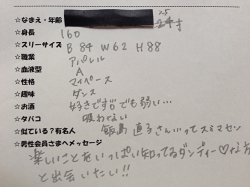 ☆なまえ・年齢 25才
☆身長 160
☆スリーサイズ B 84 W 62 H 88
☆職業 アパレル
☆血液型 A
☆性格 マイペース
☆趣味 ダンス
☆お酒 好きですがでも弱い…
☆タバコ 吸わない
☆似ている?有名人 飯島直子さんいってスミマセン
☆男性会員さまへメッセージ
楽しいことをいっぱい知ってるダンディー♡な方
と出会いたい!!